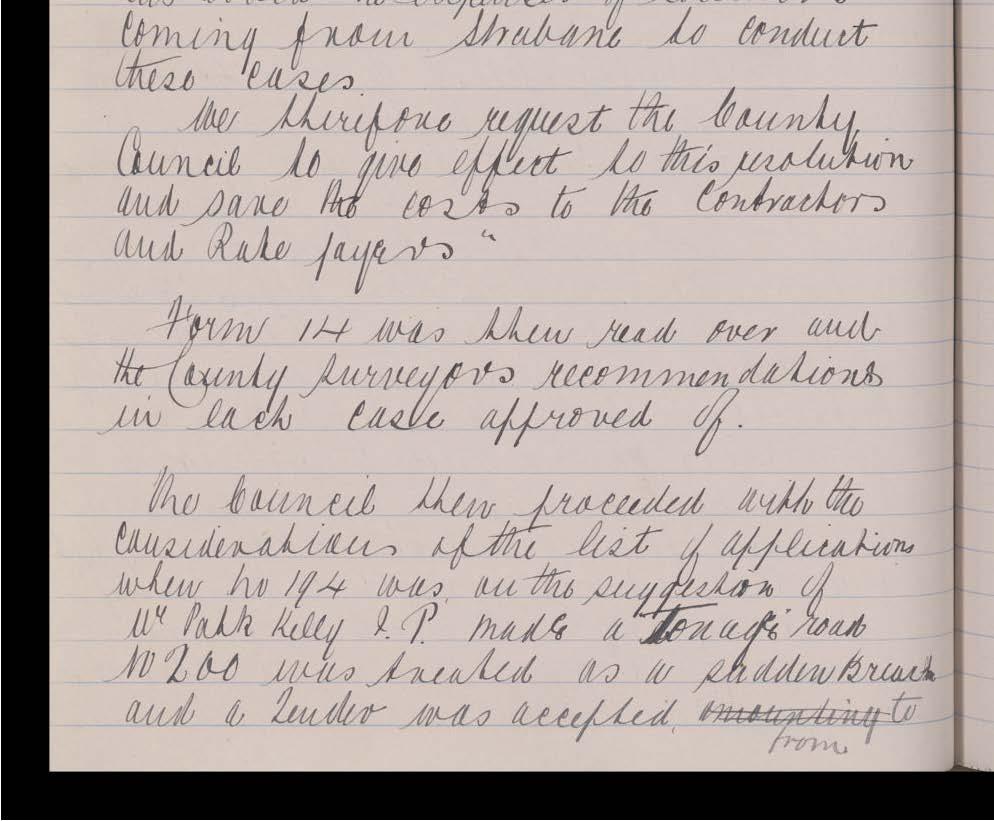 coming from Strabane to conduct
these cases.
We therefore request the County
Council to give effect to this resolution
and save the costs to the Contractors
and Rate payers"
Form 14 was then read over and
the County Surveyors recommendations
in each case approved of.
The Council then proceeded with the
considerations of the list of applications
when No 194 was, on the suggestion of
Mr Patk Kelly J.P. made a tonage road
No 200 was treated as a sudden Breach
and a Tender was accepted, amounting to
from